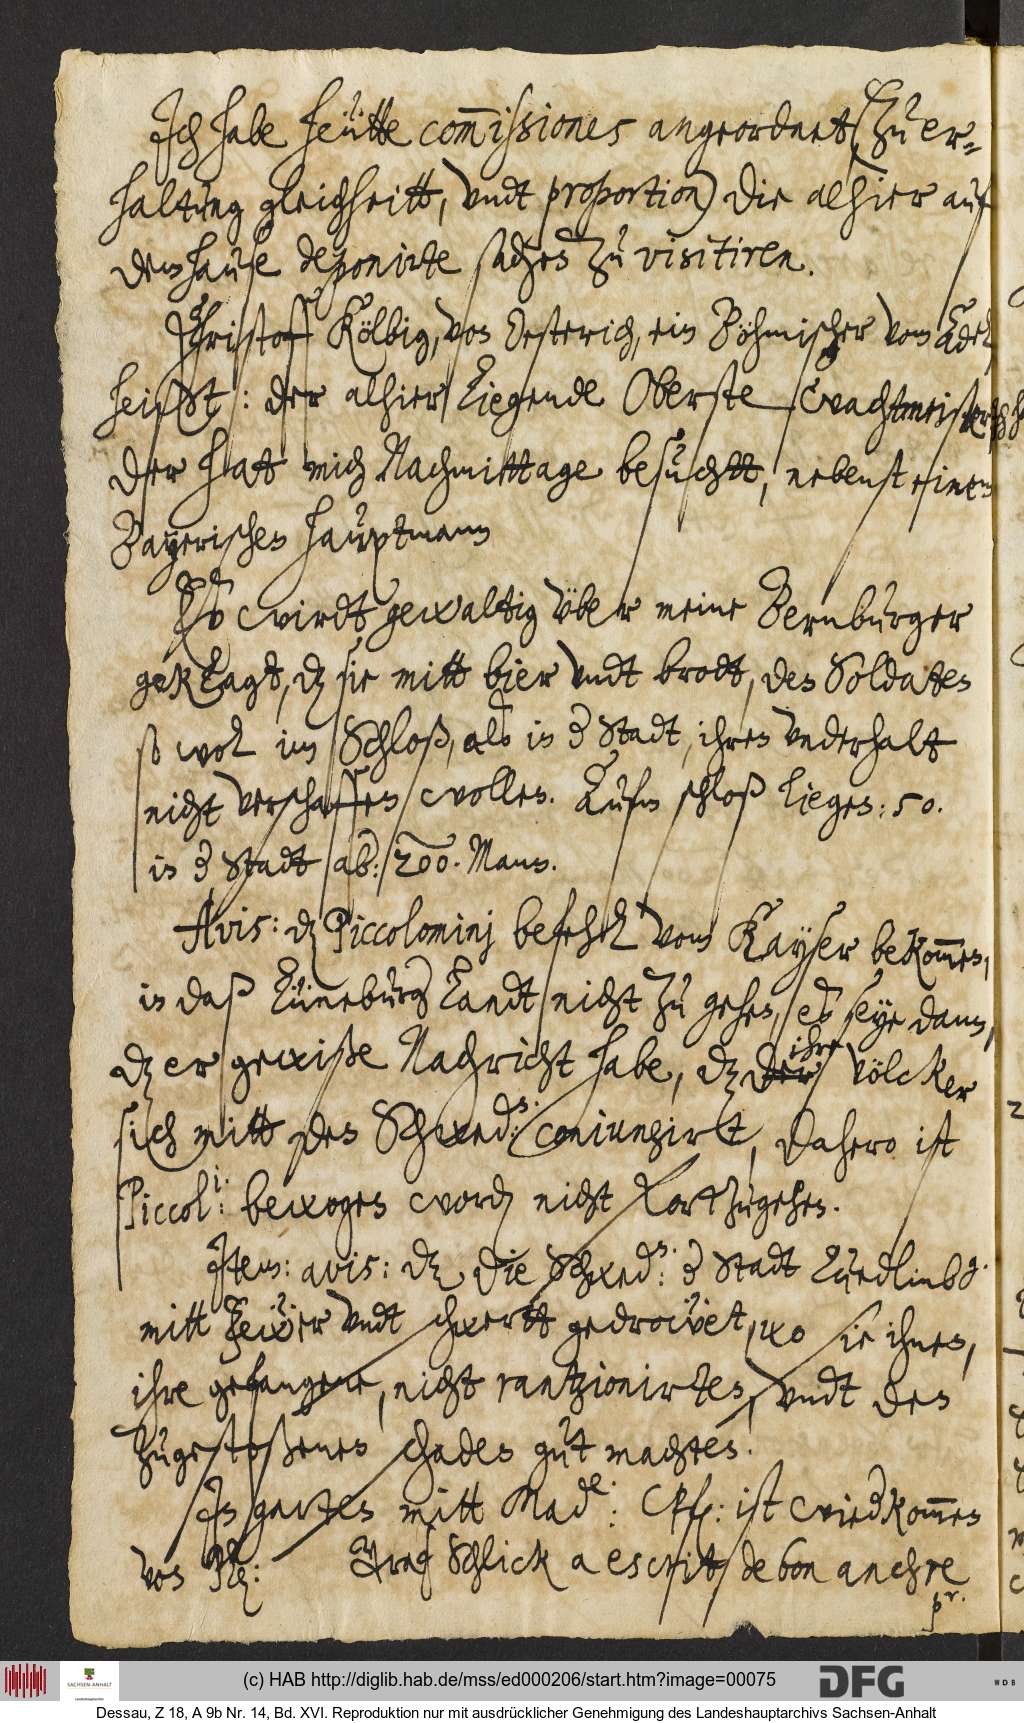 Jch habe heütte commissiones angeordnet (zu er-
haltung gleichheitt, vndt proportion) die alhier auf
dem hause deponirte sachen zu visitiren.
Christoff Kölbig, von Oesterich, ein Böhmischer vom Adel
heißt: der alhier liegende Oberste wachtmeister
der hatt mich Nachmittage besuchtt, nebenst einem
Bayerischen hauptmann
Es wirdt gewaltig vber meine Bernburger
geklagt, dz sie mitt bier vndt brodt, den Soldaten
so wol im Schloß, als in d Stadt, ihren vnderhalt
nicht verschaffen wollen. Aufm schloß liegen: 50.
in d Stadt ab: 200. Mann.
Avis: dz Piccolominj befehl vom Kayser bekommen,
in daß Lüneburg Landt nicht zu gehen, es seye dann,
dz er gewiße Nachricht habe, dz der ihre völcker
sich mitt den Schwed:n: coniungirt, dahero ist
Piccol:i: bewogen word nicht fortzugehen.
Jtem: avis: dz die Schwed:n: d Stadt Quedlinb:g:
mitt fewer vndt schwertt gedrowet, wo sie ihnen,
ihre gefangene, nicht rantzionirten, vndt den
zugestoßenen schaden gut machten.
Jn garten mitt Mad:e: CPf: ist wied kommen
von Pl: Graf Schlick a escrit de bon anchre
pr.
(c) HAB http://diglib.hab.de/mss/ed000206/start.htm?image=00075
SACHSEN-ANHALT
DFG
WDB
Dessau, Z 18, A 9b Nr. 14, Bd. XVI. Reproduktion nur mit ausdrücklicher Genehmigung des Landeshauptarchivs Sachsen-Anhalt